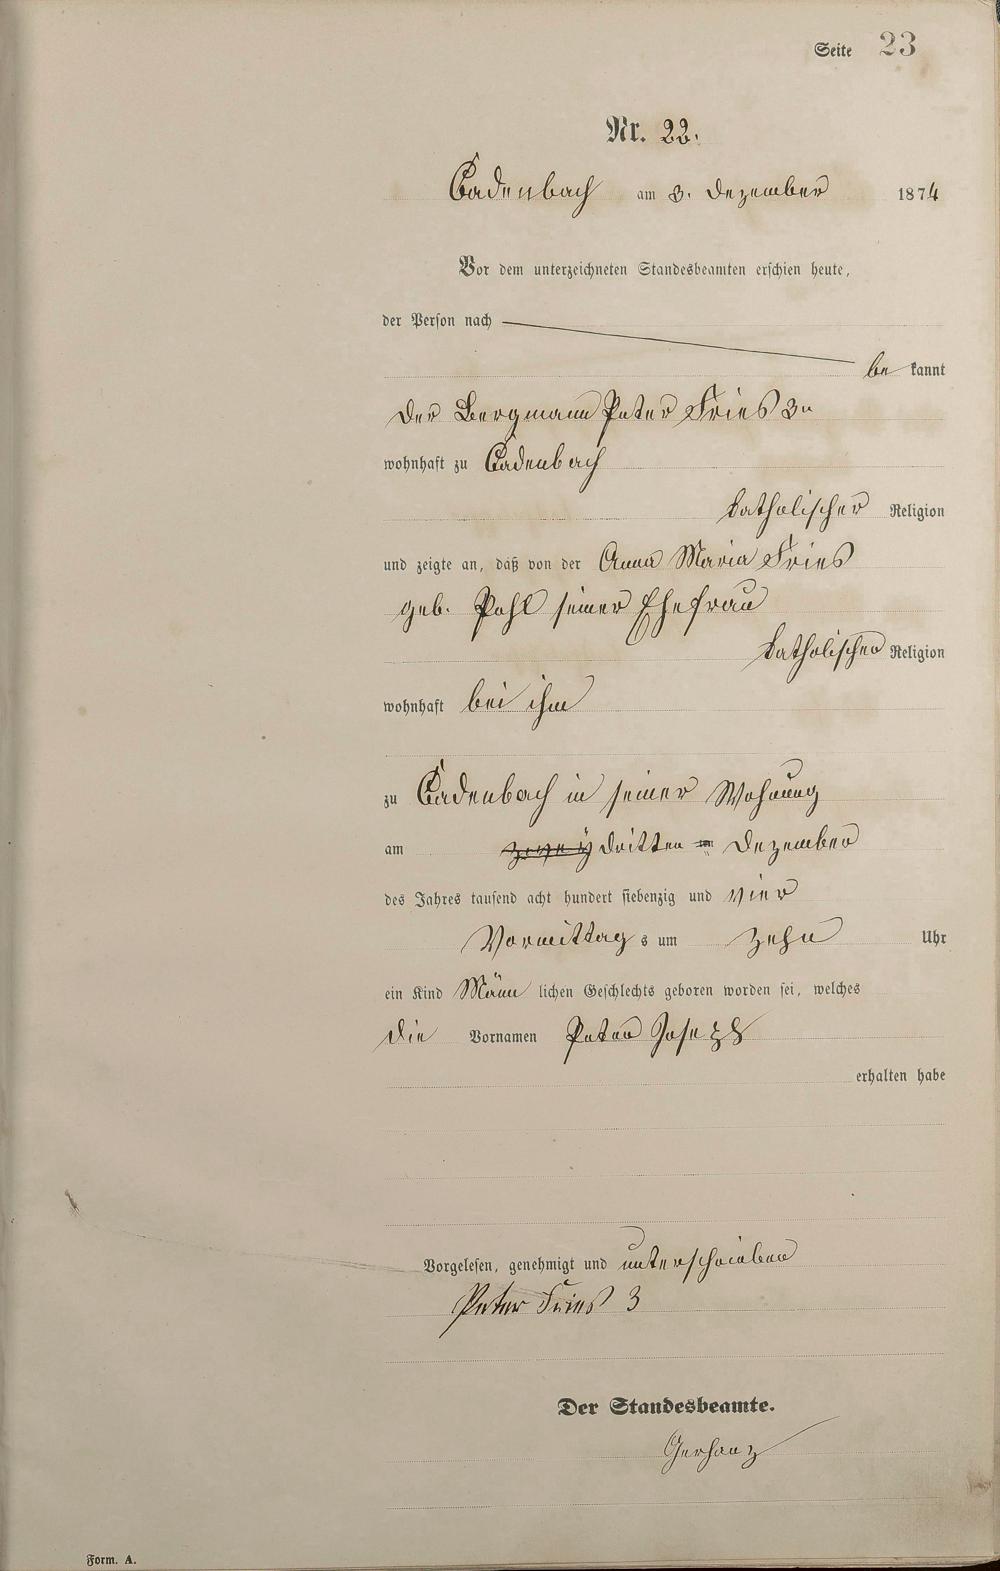 Seite 23
Nr. 22.
Cadenbach am 3. Dezember 1874
Vor dem unterzeichneten Standesbeamten erschien heute,
der Person nach
be kannt
der Bergmann Peter Fries 3n
wohnhaft zu Cadenbach
katholischer Religion
und zeigte an, daß von der Anna Maria Fries
geb. Pohl seiner Ehefrau
katholischer Religion
wohnhaft bei ihm
zu Cadenbach in seiner Wohnung
am dritten Dezember
des Jahres tausend acht hundert siebenzig und vier
Vormittag s um zehn Uhr
ein Kind Männ lichen Geschlechts geboren worden sei, welches
die Vornamen Peter Joseph
erhalten habe
Vorgelesen, genehmigt und unterschrieben
Peter Fries 3
Der Standesbeamte.
Gerhanz
Form. A.